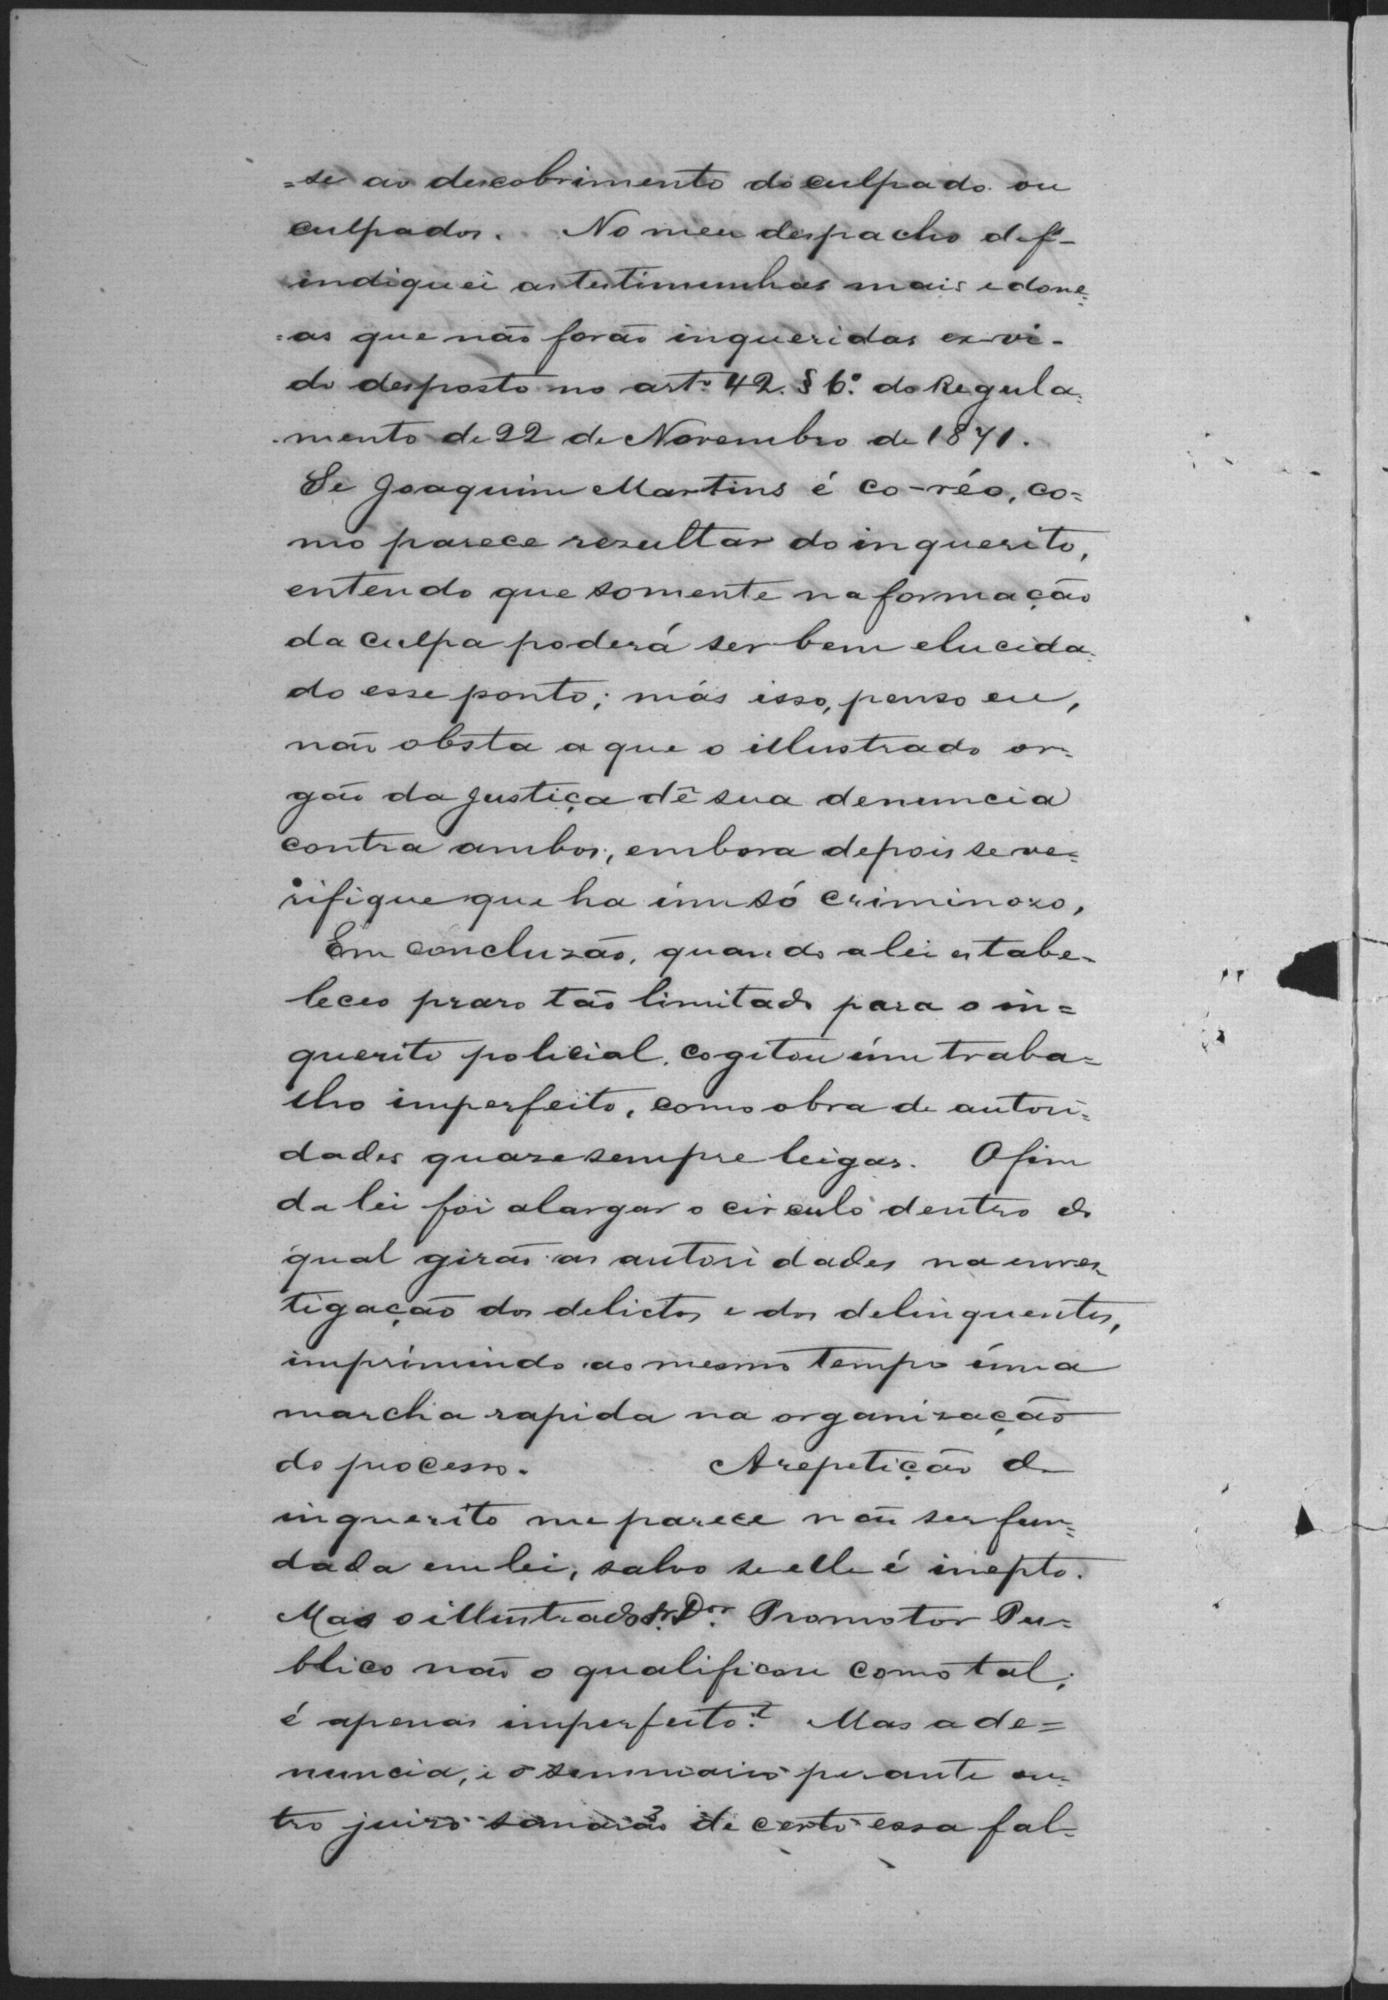 =se ao descobrimento do culpado ou
culpados. No meu despacho de f-
indiquei as testimunhas mais edone=
=as que não forão inqueridas ex-vi-
do desposto no art.º 42. § 6.º do Regula=
mento de 22 de Novembro de 1871.
Se Joaquim Martins é co-réo, co=
mo parece rezultar do inquerito,
entendo que somente na formação
da culpa poderá ser bem elucida=
do esse ponto; más isso, penso eu,
não obsta a que o illustrado or=
gão da justiça dê sua denuncia
contra ambos, embora depois se ve=
rifique que ha úm só criminozo,
Em concluzão, quando a lei estabe-
leceo prazo tão limitado para o in=
querito policial, cogitou úm traba=
lho imperfeito, como obra de autori=
dades quaze sempre leigas. O fim
da lei foi alargar o circulo dentro do
qual girão as autoridades na inves
tigação dos delictos e dos delinquentes,
imprimindo ao mesmo tempo úma
marcha rapida na organização
do processo. A repetição de
inquerito me parece não ser fun=
dada em lei, salvo se elle é inepto.
Mas o illustrado Sr. Dor. Promotor Pu=
blico não o qualificou como tal;
é apenas imperfeito? Mas a de=
nuncia, e o summario perante ou=
tro juizo sanarão de certo essa fal=